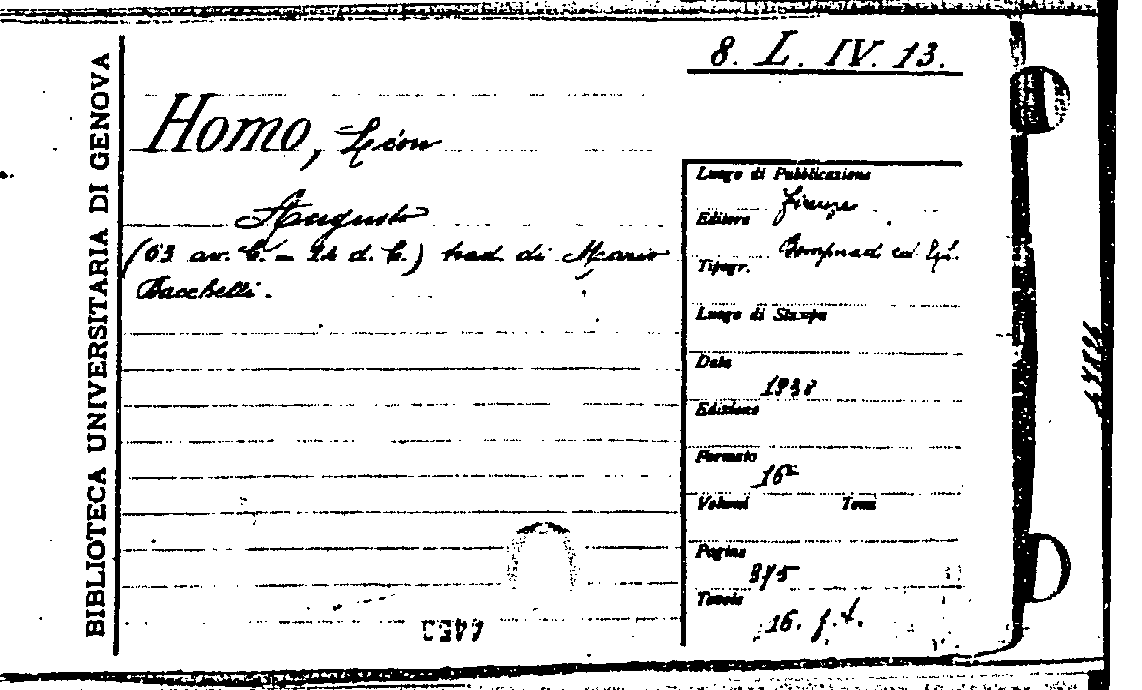 BIBLIOTECA UNIVERSITARIA DI GENOVA
8. L. IV. 13.
Homo, Léon
Augusto
(63 av. C. - 14 d. C.) trad. di Mario
Bacchelli.
Luogo di Pubblicazione
Firenze
Editore
Tipogr.
Luogo di Stampa
Data
1938
Edizione
Formato
16°
Volumi Tomi
Pagine
375
Tavole
16. f. t.
4453